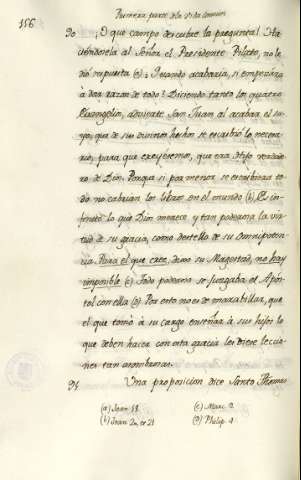 156
Primera parte de la Vida comun
90 ¡O que campo descubre la pregunta! Ha-
ciendosela al Señor el Presidente Pilato, no le
dió respuesta (a): Quando acabaria, si empezàra
à dar razon de todo? Diciendo tanto los quatro
Evangelios, advierte San Juan al acabar el su-
yo, que de sus divinos hechos se escribió lo necesa-
rio, para que creyesemos, que era Hijo verdade-
ro de Dios. Porque si por menor se escribiera to-
do no cabrian los libros en el mundo (b). Es in-
finito lo que Dios merece, y tan poderosa la vir-
tud de su gracia, como destello de su Omnipoten-
cia. Para el que cree, dice su Magestad, no hay
imposible (c). Todo poderoso se juzgaba el Apos-
tol con ella (d). Por esto no es de maravillar, que
el que tomó à su cargo enseñar à sus hijos lo
que deben hacer con esta gracia les diese leccio-
nes tan asombrosas.
91 Una proposicion dice Santo Thomas
(a) Joan 18.
(c) Marc. 9
(b) Joan 20, et 21
(d) Philip. 4